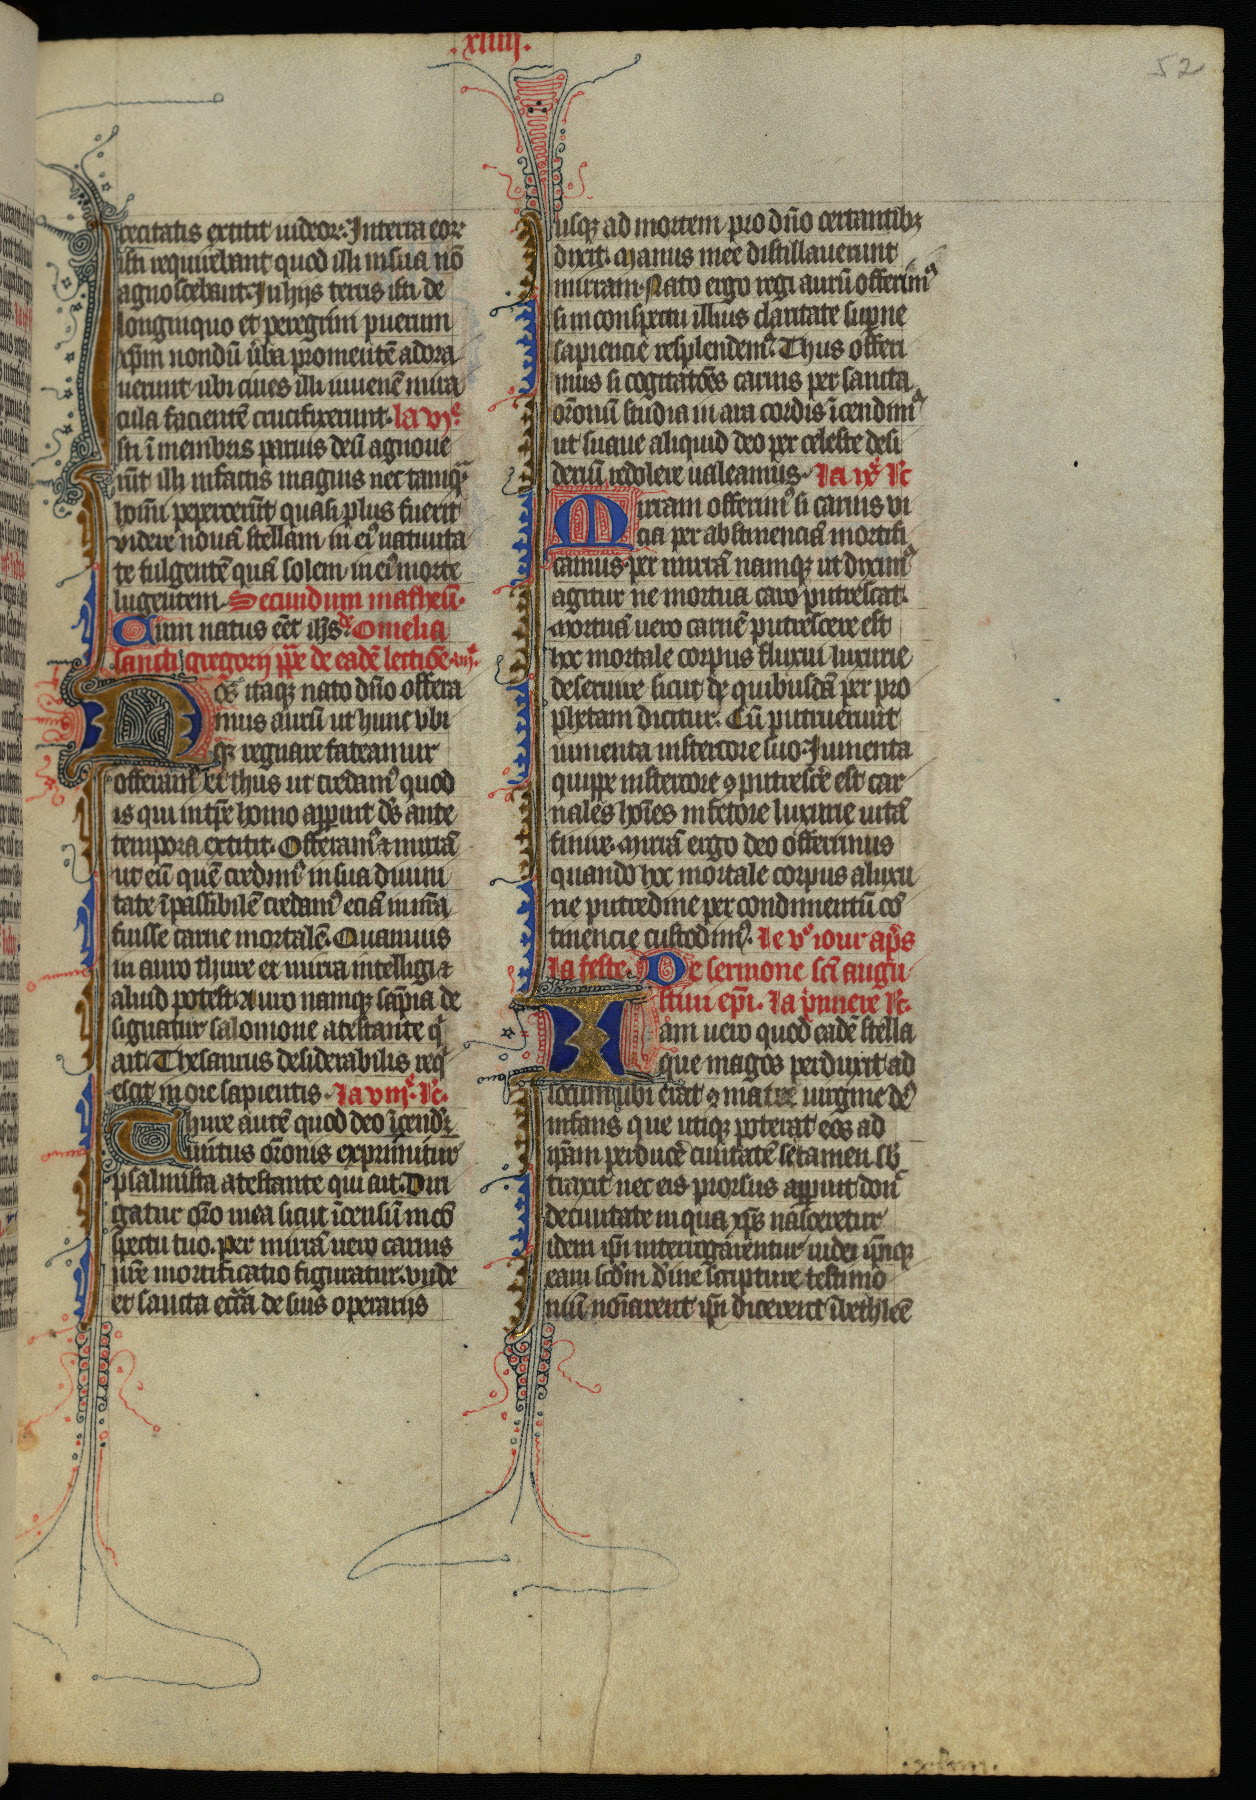 .xliiij.
52
cecitatis extitit uideor. In terra eor
isti requirebant quod illi in sua nō
agnoscebant. In hijs terris isti de
longinquo et peregrini puerum
xp̄m nondū ūba promentē adora
uerunt. ubi ciues illi iuuenē mira
cula facientē crucifixerunt. la vjᵉ
sti ī membris paruis deū agnoue
rūt illi in factis magnis nec tamqᷓ
homī pepercerūt quasi plus fuerit
videre nouā stellam in ei᷒ natiuita
te fulgentē quā solem in ei᷒ morte
lugentem. Secundum matheū.
Cum natus eēt ihs̄. Omelia
sancti gregorij pp̄e de eadē lectiōe. vijᵃ
os itaqꝫ nato dn̄o offera
mus aurū ut hunc vbi
qꝫ regnare fateamur
offeram᷒ et thus ut credam᷒ quod
is qui in tp̄e homo apparuit ds̄ ante
tempora extitit. Offeram᷒ ⁊ mirrā
ut eū quē credim᷒ in sua diuini
tate īpassibilē credam᷒ eciā in nr̄a
fuisse carne mortalē. Quamuis
in auro thure et mirra intelligi ⁊
aliud potest. Auro namqꝫ sap̄ia de
signatur salomone atestante q̄
ait. Thesaurus desiderabilis req̄
escit in ore sapientis. la viijᵉ. lc̄.
hure autē quod deo īcendit᷒
uirtus or̄onis exprimitur
psalmista atestante qui ait. Diri
gatur or̄o mea sicut īcensū in cō
spectu tuo. per mirrā uero carnis
nr̄e mortificatio figuratur. vnde
et sancta ecc̄ia de suis operarijs
usqꝫ ad mortem pro dn̄o certantibꝫ
dixit. Manus mee distillauerunt
mirram. Nato ergo regi aurū offerim᷒
si in conspectu illius claritate supne
sapiencie resplendem᷒. Thus offeri
mus si cogitatōes carnis per sancta
or̄onū studia in ara cordis īcendim᷒
ut suaue aliquid deo per celeste desi
deriū redolere ualeamus. la ixᵉ lc̄
Mirram offerim᷒ si carnis vi
cia per abstinenciā mortifi
camus. per mirrā namqꝫ ut dixim᷒
agitur ne mortua caro putrescat.
Mortuā uero carnē putrescere est
hoc mortale corpus fluxui luxurie
deseruire sicut de quibusdā per pro
phetam dicitur. Cū putruerunt
iumenta in stercore suo. Iumenta
quippe in stercore ꝯputresce̅ est car
nales hoīes in fetore luxurie uitā
finire. Mirrā ergo deo offerimus
quando hoc mortale corpus a luxu
rie putredine per condimentū cō
tinencie custodim᷒. le vᵉ iour apr̄s
la feste. De sermone sc̄i augu
stini ep̄i. la pmiere lc̄.
am uero quod eadē stella
que magos perduxit ad
locum ubi erat ꝯ matre uirgine de᷒
infans que utiqꝫ poterat eos ad
ip̄am perduce̅ ciuitatē se tamen sb̄
traxit nec eis prorsus apparuit don̄
de ciuitate in qua xp̄s nasceretur
idem ip̄i interrogarentur iudei ip̄iqꝫ
eam sc̄dm diuine scripture testimo
niū noīarent ip̄i dicerent ī bethleē